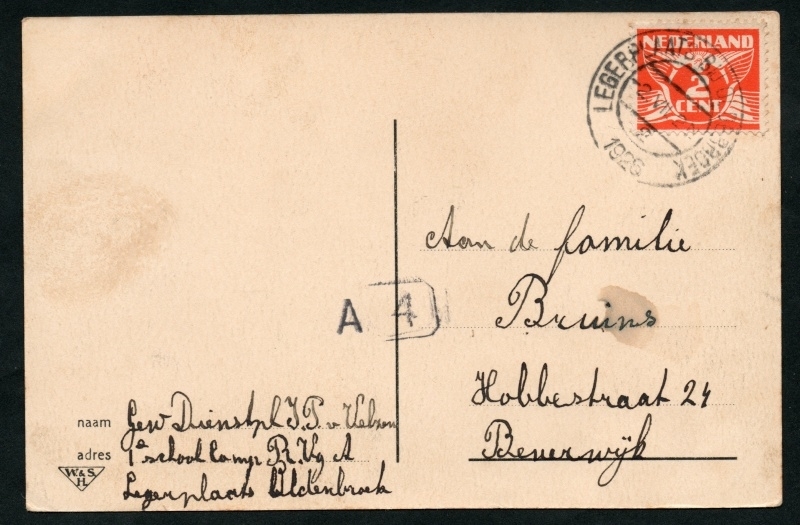 NEDERLAND
2
CENT
LEGERPLAATS
BROEK
1926
Aan de familie
Bruins
Hobbestraat 24
Beverwijk
A 4
naam Gew Dienstpl J.P. v Velzen
adres 1e school Comp R.Vg A
Legerplaats Oldenbroek
W.&S.
H.